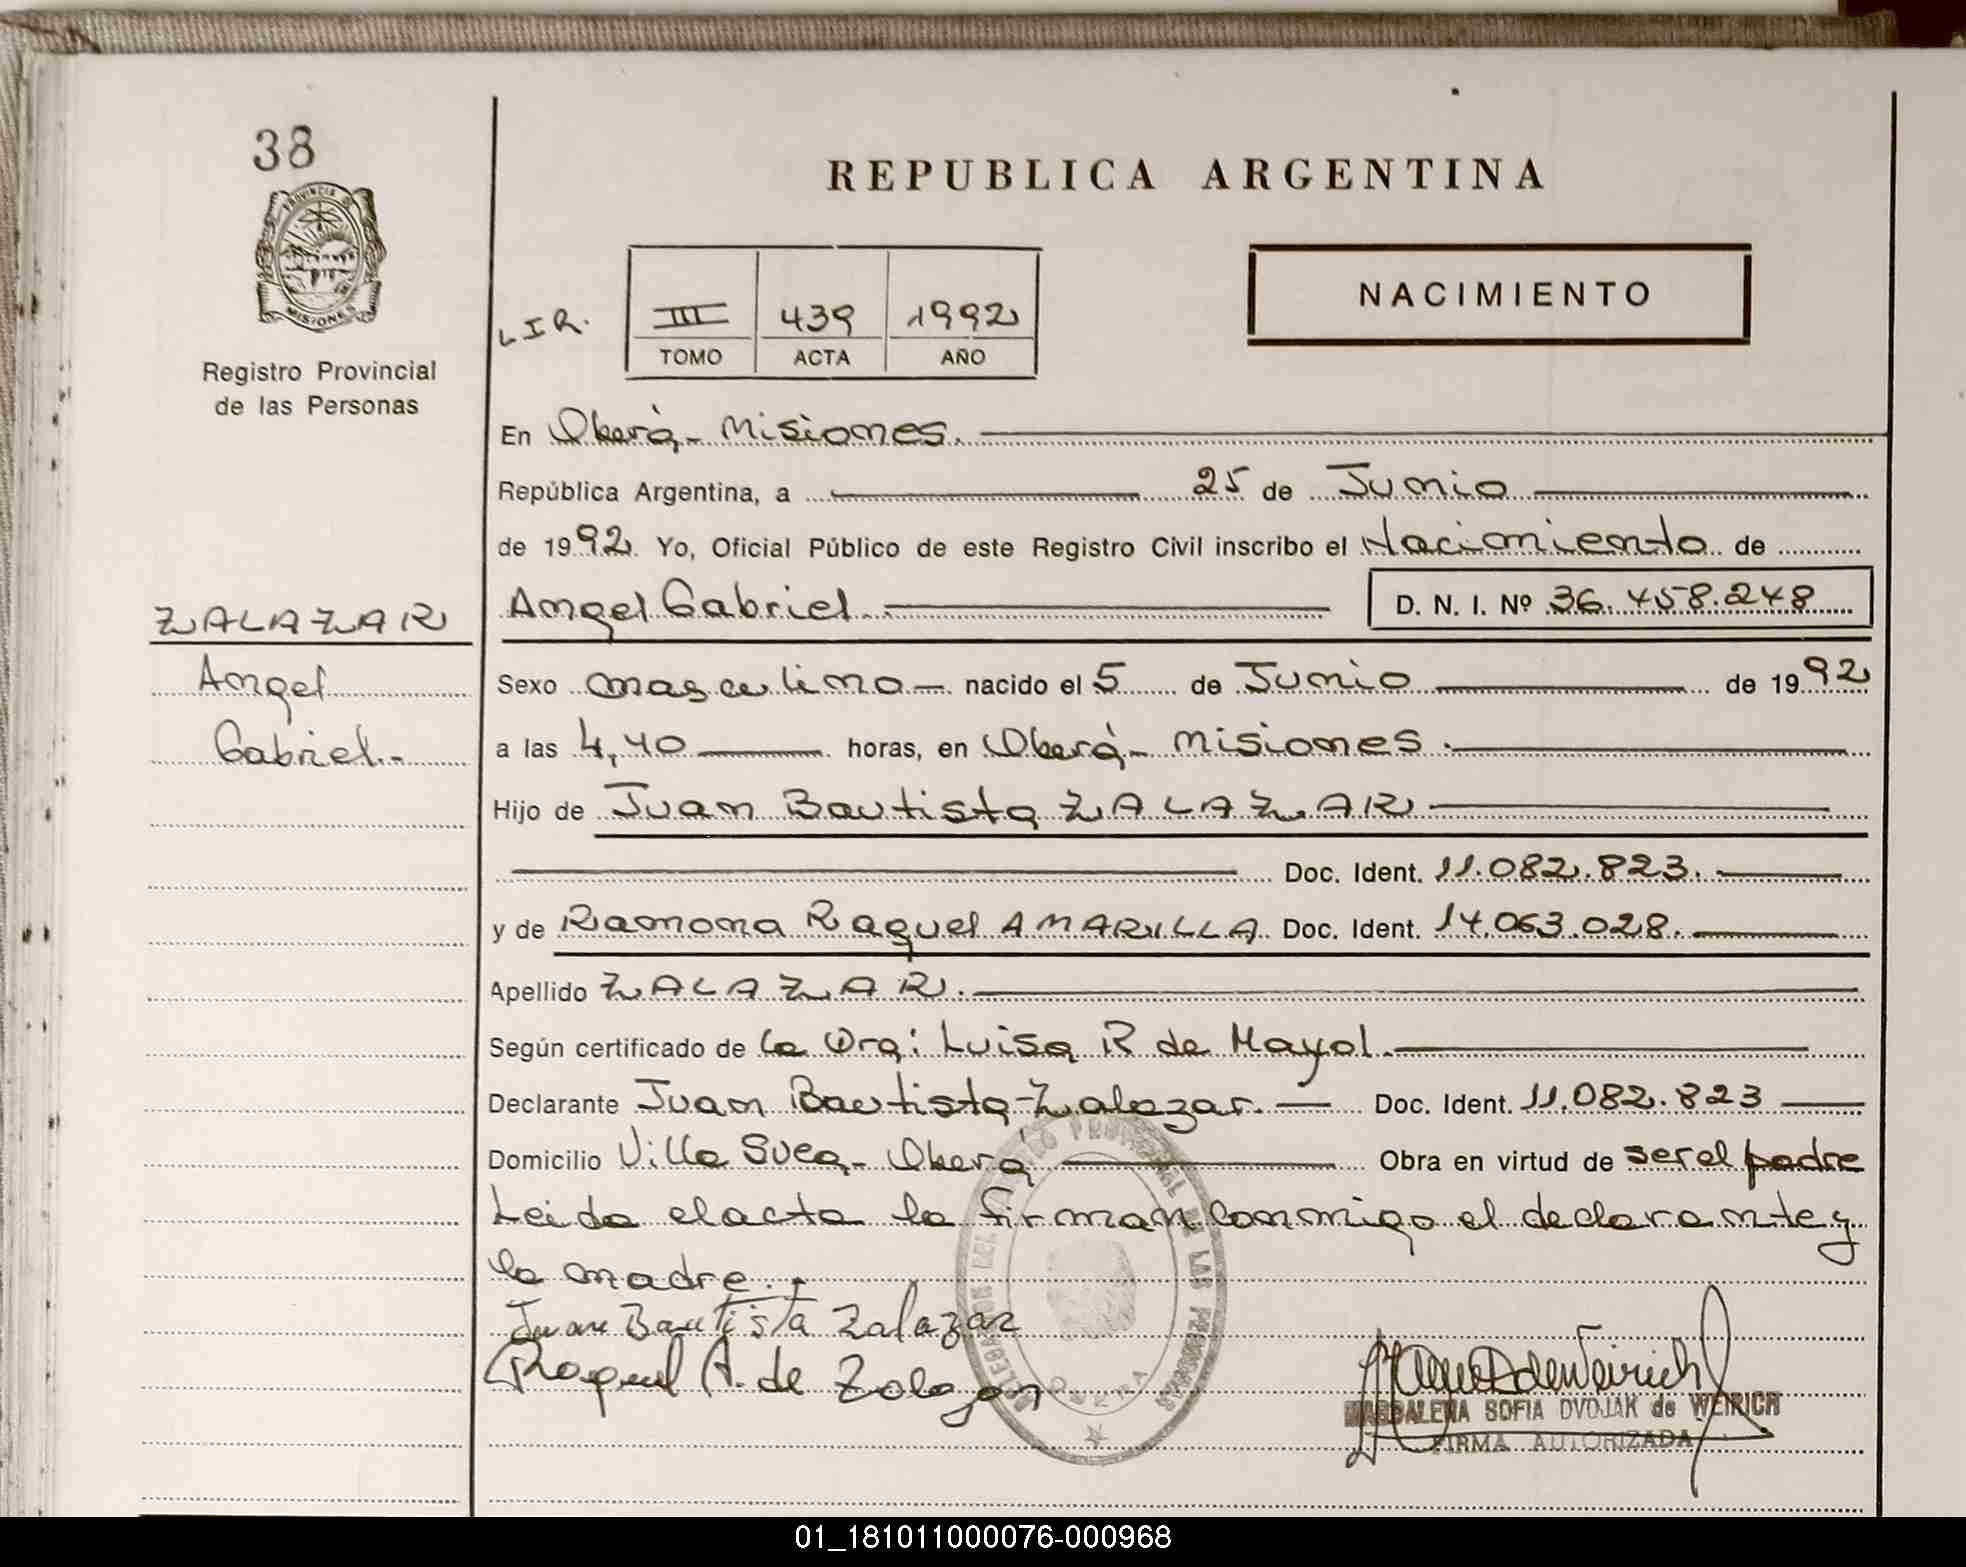 38
PROVINCIA DE
MISIONES
Registro Provincial
de las Personas
REPUBLICA ARGENTINA
NACIMIENTO
L.I.R.
III 439 1992
TOMO ACTA AÑO
En Oberá - Misiones.
República Argentina, a 25 de Junio
de 1992. Yo, Oficial Público de este Registro Civil inscribo el Nacimiento de
ZALAZAR
Angel Gabriel D. N. I. Nº 36.458.248
Angel
Sexo masculino - nacido el 5 de Junio de 1992
Gabriel.-
a las 4,40 horas, en Oberá - Misiones.
Hijo de Juan Bautista ZALAZAR
Doc. Ident. 11.082.823.
y de Ramona Raquel AMARILLA Doc. Ident. 14.063.028.
Apellido ZALAZAR.
Según certificado de la Dra: Luisa R de Mayol.
Declarante Juan Bautista Zalazar. Doc. Ident. 11.082.823
Domicilio Villa Svea - Oberá Obra en virtud de ser el padre
Leida el acta la firman conmigo el declarante y
la madre.
Juan Bautista Zalazar
Raquel A. de Zalazar
DELEGACION DEL REGISTRO PROVINCIAL DE LAS PERSONAS
OBERA
MAGDALENA SOFIA DVOJAK de WEIRICH
FIRMA AUTORIZADA
01_181011000076-000968